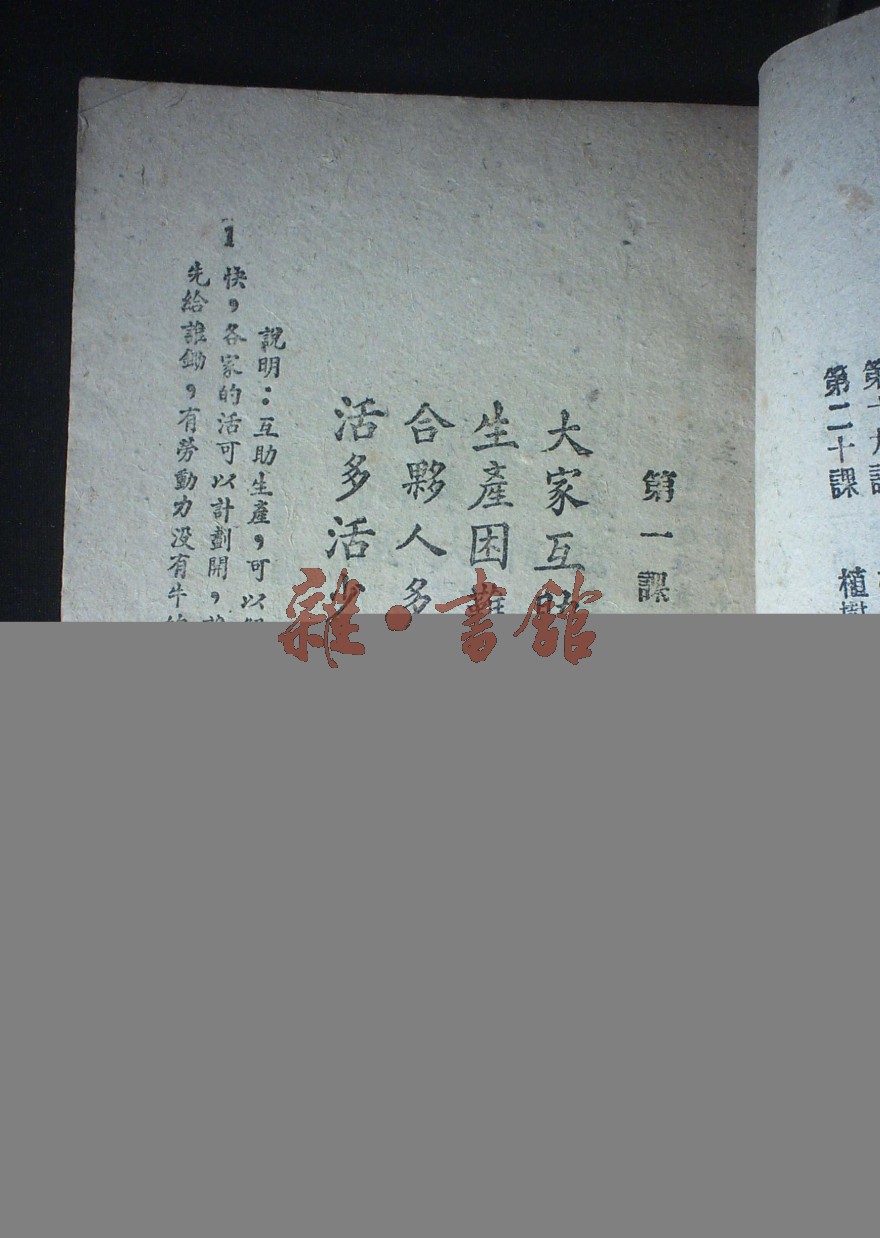 第二十課 植樹
第一課
大家互助
生產困難
合夥人多
活多活少
說明：互助生產，可以
快，各家的活可以計劃開，
先給誰鋤，有勞動力沒有牛的
1
雜·書館